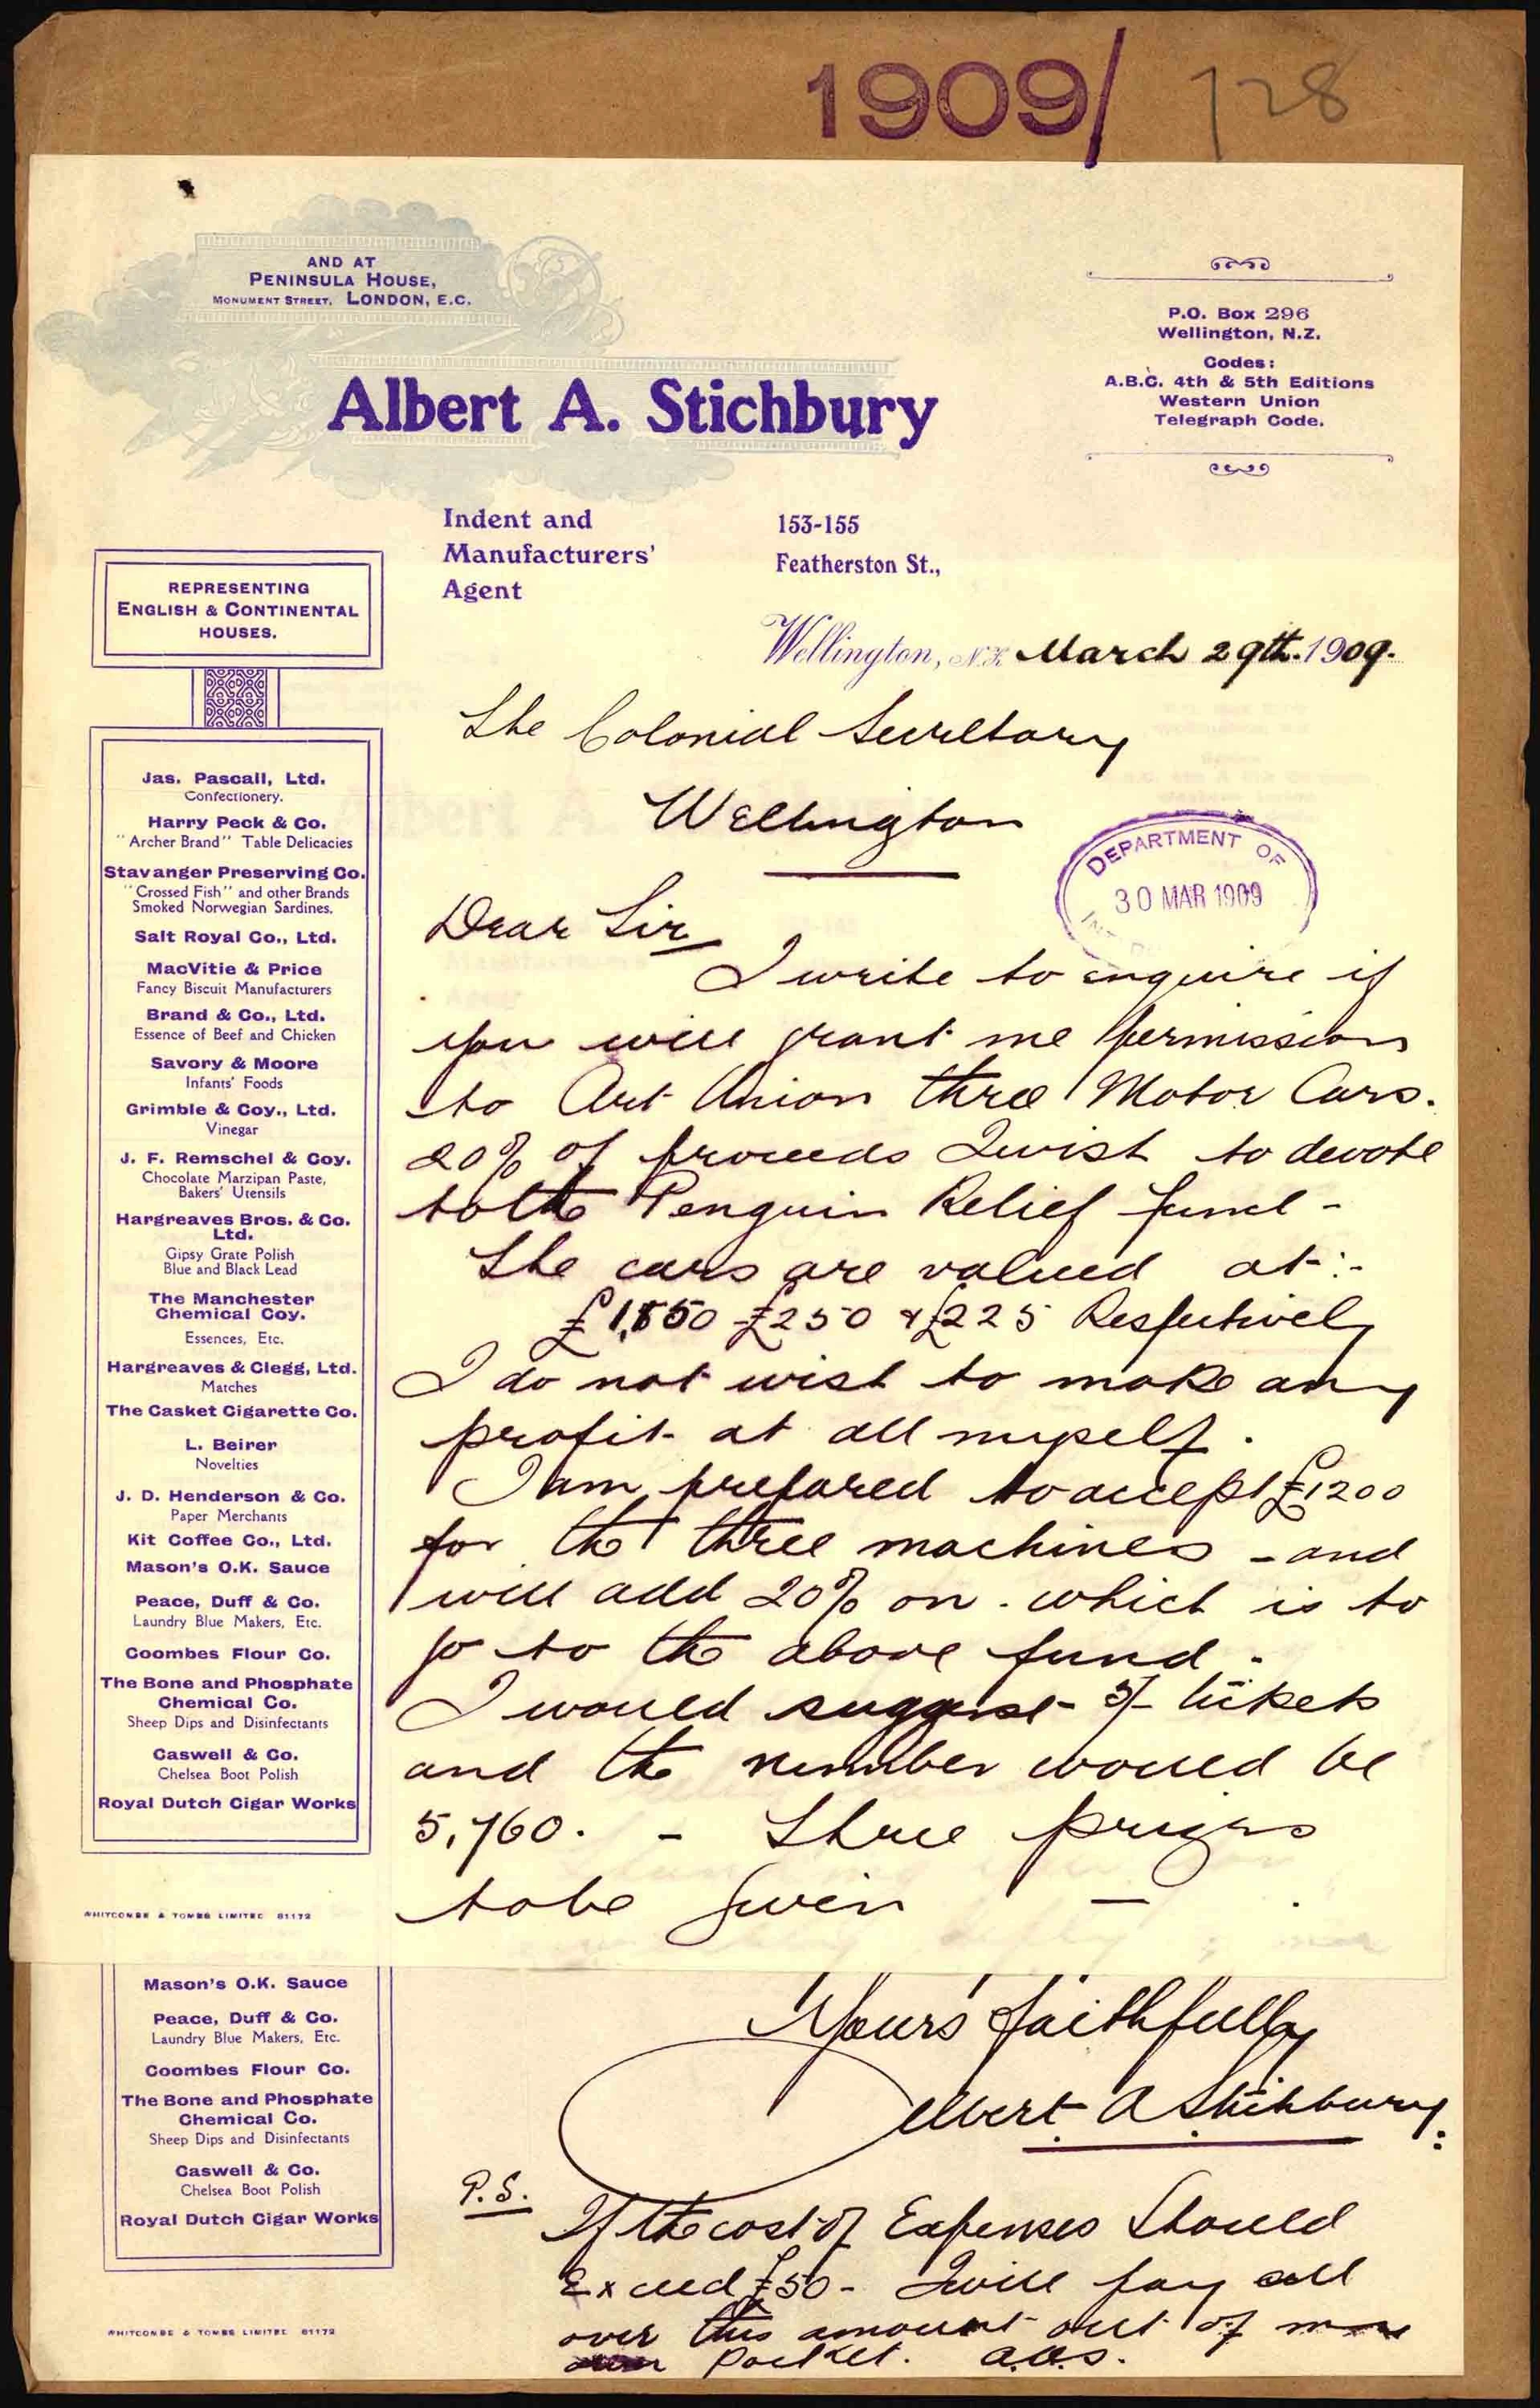 1909/ 728
AND AT
PENINSULA HOUSE,
MONUMENT STREET, LONDON, E.C.
P.O. Box 296
Wellington, N.Z.
Codes:
A.B.C. 4th & 5th Editions
Western Union
Telegraph Code.
Albert A. Stichbury
Indent and
Manufacturers'
Agent
153-155
Featherston St.,
Wellington, N.Z. March 29th. 1909.
REPRESENTING
ENGLISH & CONTINENTAL
HOUSES.
Jas. Pascall, Ltd.
Confectionery.
Harry Peck & Co.
"Archer Brand" Table Delicacies
Stavanger Preserving Co.
"Crossed Fish" and other Brands
Smoked Norwegian Sardines.
Salt Royal Co., Ltd.
MacVitie & Price
Fancy Biscuit Manufacturers
Brand & Co., Ltd.
Essence of Beef and Chicken
Savory & Moore
Infants' Foods
Grimble & Coy., Ltd.
Vinegar
J. F. Remschel & Coy.
Chocolate Marzipan Paste,
Bakers' Utensils
Hargreaves Bros. & Co.
Ltd.
Gipsy Grate Polish
Blue and Black Lead
The Manchester
Chemical Coy.
Essences, Etc.
Hargreaves & Clegg, Ltd.
Matches
The Casket Cigarette Co.
L. Beirer
Novelties
J. D. Henderson & Co.
Paper Merchants
Kit Coffee Co., Ltd.
Mason's O.K. Sauce
Peace, Duff & Co.
Laundry Blue Makers, Etc.
Coombes Flour Co.
The Bone and Phosphate
Chemical Co.
Sheep Dips and Disinfectants
Caswell & Co.
Chelsea Boot Polish
Royal Dutch Cigar Works
WHITCOMBE & TOMBS LIMITED 81172
The Colonial Secretary
Wellington
DEPARTMENT OF
30 MAR 1909
Dear Sir
I write to enquire if
you will grant me permission
to Art Union three Motor Cars.
20% of proceeds I wish to devote
to the Penguin Relief fund -
The cars are valued at:-
£250 & £225 Respectively
I do not wish to make any
profit at all myself.
I am prepared to accept £1200
for the three machines - and
will add 20% on. which is to
go to the above fund.
I would suggest 5/- tickets
and the number would be
5,760. - Three prizes
to be given -
Mason's O.K. Sauce
Peace, Duff & Co.
Laundry Blue Makers, Etc.
Coombes Flour Co.
The Bone and Phosphate
Chemical Co.
Sheep Dips and Disinfectants
Caswell & Co.
Chelsea Boot Polish
Royal Dutch Cigar Works
WHITCOMBE & TOMBS LIMITED 81172
Yours faithfully
Albert A Stichbury.
P.S.
If the cost of Expenses Should
Exceed £50 - I will pay all
over this amount out of my
own Pocket. A.A.S.